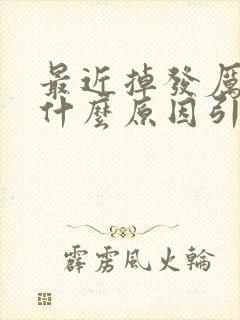 最近掉發厲
什麼原因引
霹雳風火輪